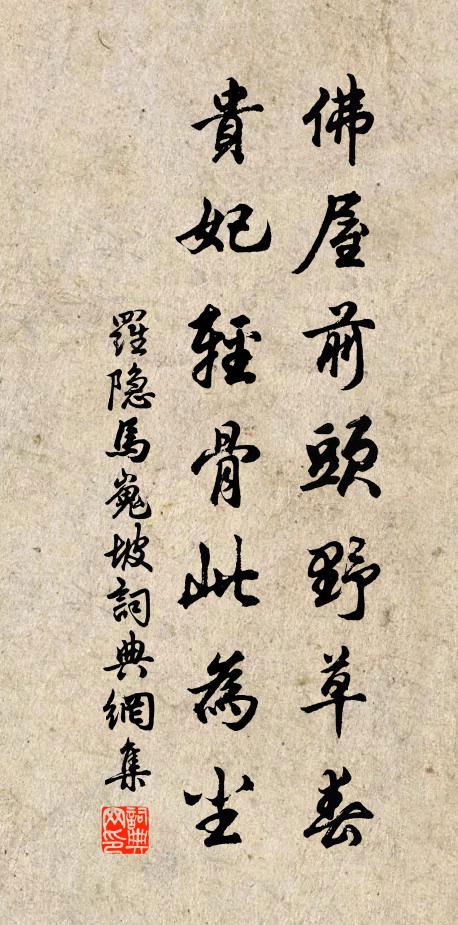 佛屋前頭野草春
貴妃輕骨此為尘
羅隐馬嵬坡詞典網集
詞典网印